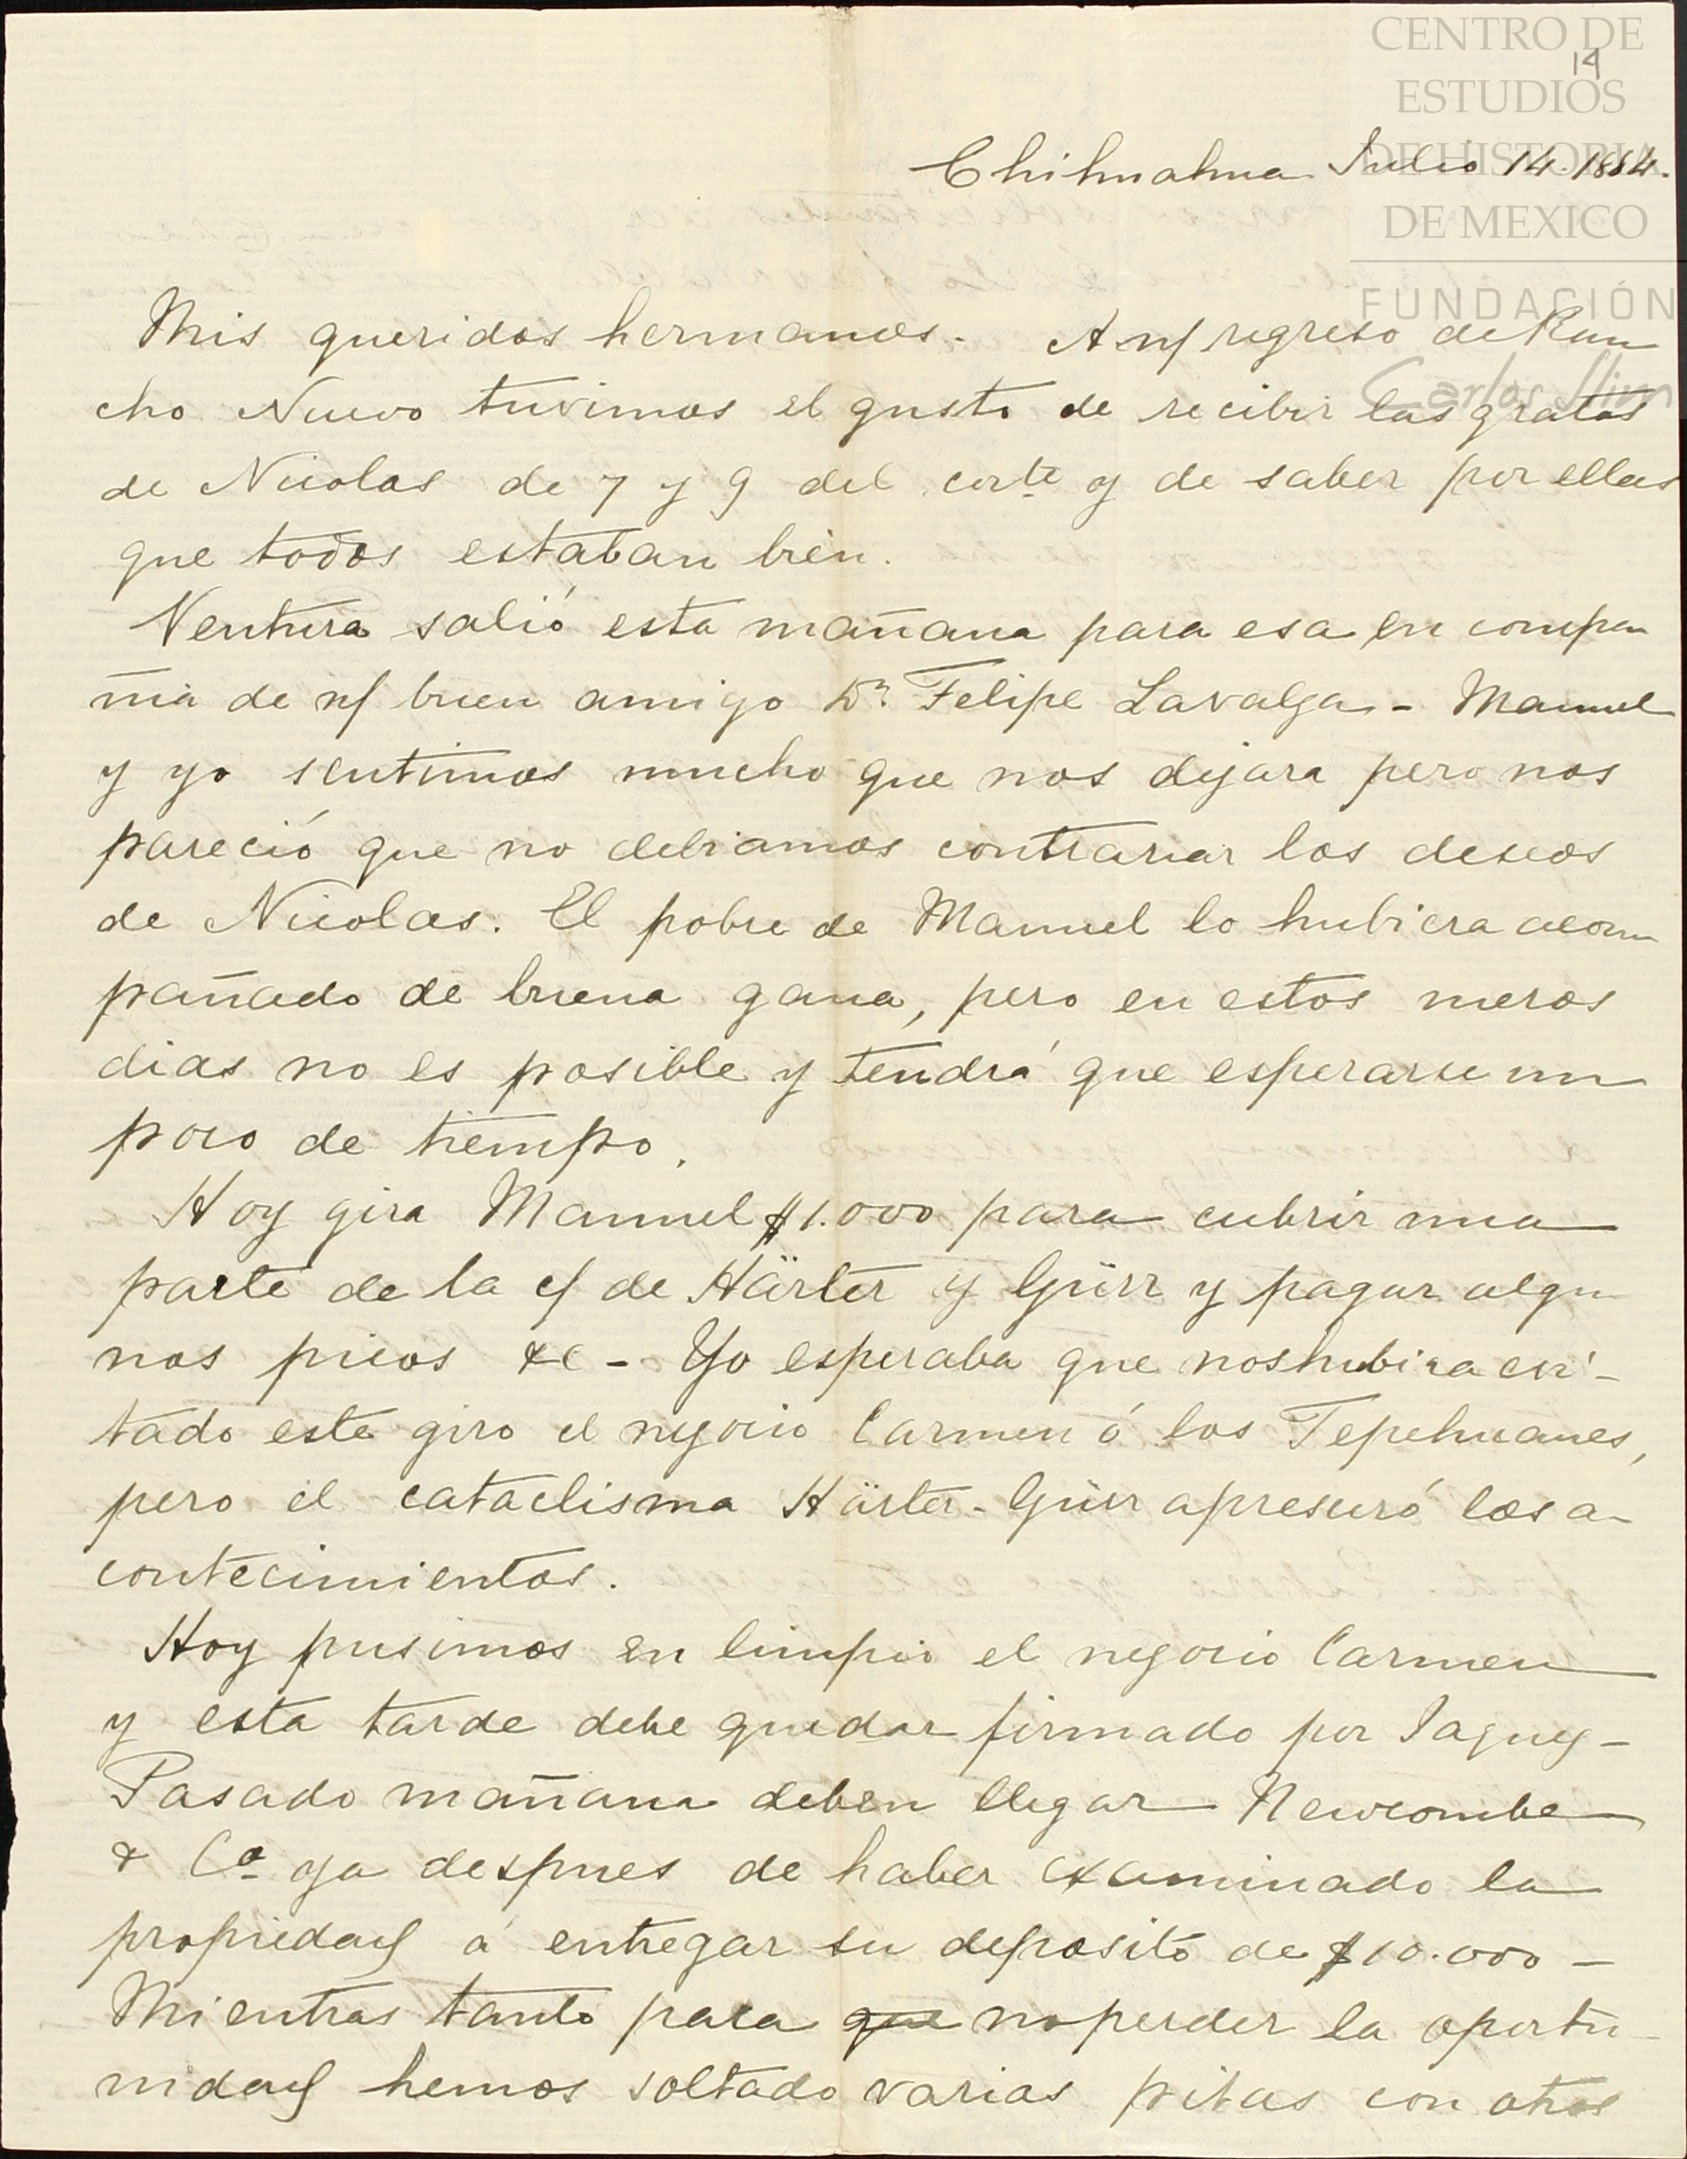 CENTRO DE
ESTUDIOS
DE HISTORIA
DE MEXICO
FUNDACIÓN
Carlos Slim
14
Chihuahua Julio 14. 1884.
Mis queridos hermanos. A n/ regreso de Ran
cho Nuevo tuvimos el gusto de recibir las gratas
de Nicolas de 7 y 9 del corte y de saber por ellas
que todos estaban bien.
Ventura salió esta mañana para esa en compa
ñia de n/ buen amigo Dn Felipe Lavalga - Manuel
y yo sentimos mucho que nos dejara pero nos
pareció que no debiamos contrariar los deseos
de Nicolas. El pobre de Manuel lo hubiera acom
pañado de buena gana, pero en estos meros
dias no es posible y tendrá que esperarse un
poco de tiempo.
Hoy gira Manuel $1.000 para cubrir una
parte de la c/ de Härter y Gürr y pagar algu
nos picos &c - Yo esperaba que nos hubiera evi-
tado este giro el negocio Carmen ó los Tepehuanes,
pero el cataclisma Härter-Gürr apresuró los a-
contecimientos.
Hoy pusimos en limpio el negocio Carmen
y esta tarde debe quedar firmado por Jaguey -
Pasado mañana deben llegar Newcombe
& Ca ya despues de haber examinado la
propiedad á entregar su deposito de $10.000 -
Mientras tanto para que no perder la oportu-
nidad hemos soltado varias pitas con otros